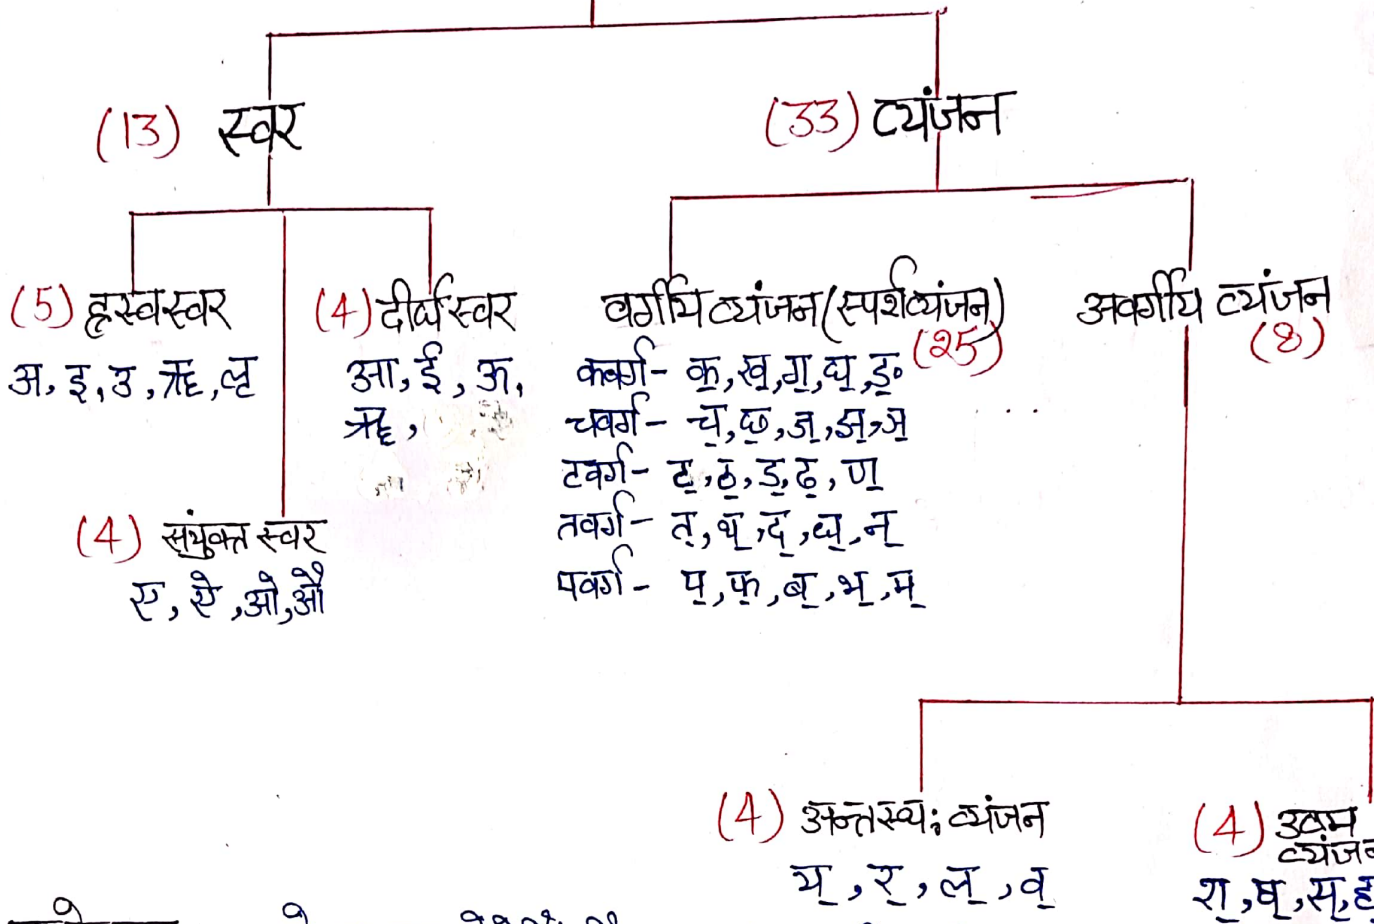 (13) स्वर
(33) व्यंजन
(5) ह्रस्व स्वर
अ, इ, उ, ऋ, लृ
(4) दीर्घ स्वर
आ, ई, ऊ,
ॠ,
(4) संयुक्त स्वर
ए, ऐ, ओ, औ
वर्गीय व्यंजन (स्पर्श व्यंजन)
(25)
कवर्ग - क्, ख्, ग्, घ्, ङ्
चवर्ग - च्, छ्, ज्, झ्, ञ्
टवर्ग - ट्, ठ्, ड्, ढ्, ण्
तवर्ग - त्, थ्, द्, ध्, न्
पवर्ग - प्, फ्, ब्, भ्, म्
अवर्गीय व्यंजन
(8)
(4) अन्तस्थः व्यंजन
य्, र्, ल्, व्
(4) उष्म
व्यंजन
श्, ष्, स्, ह